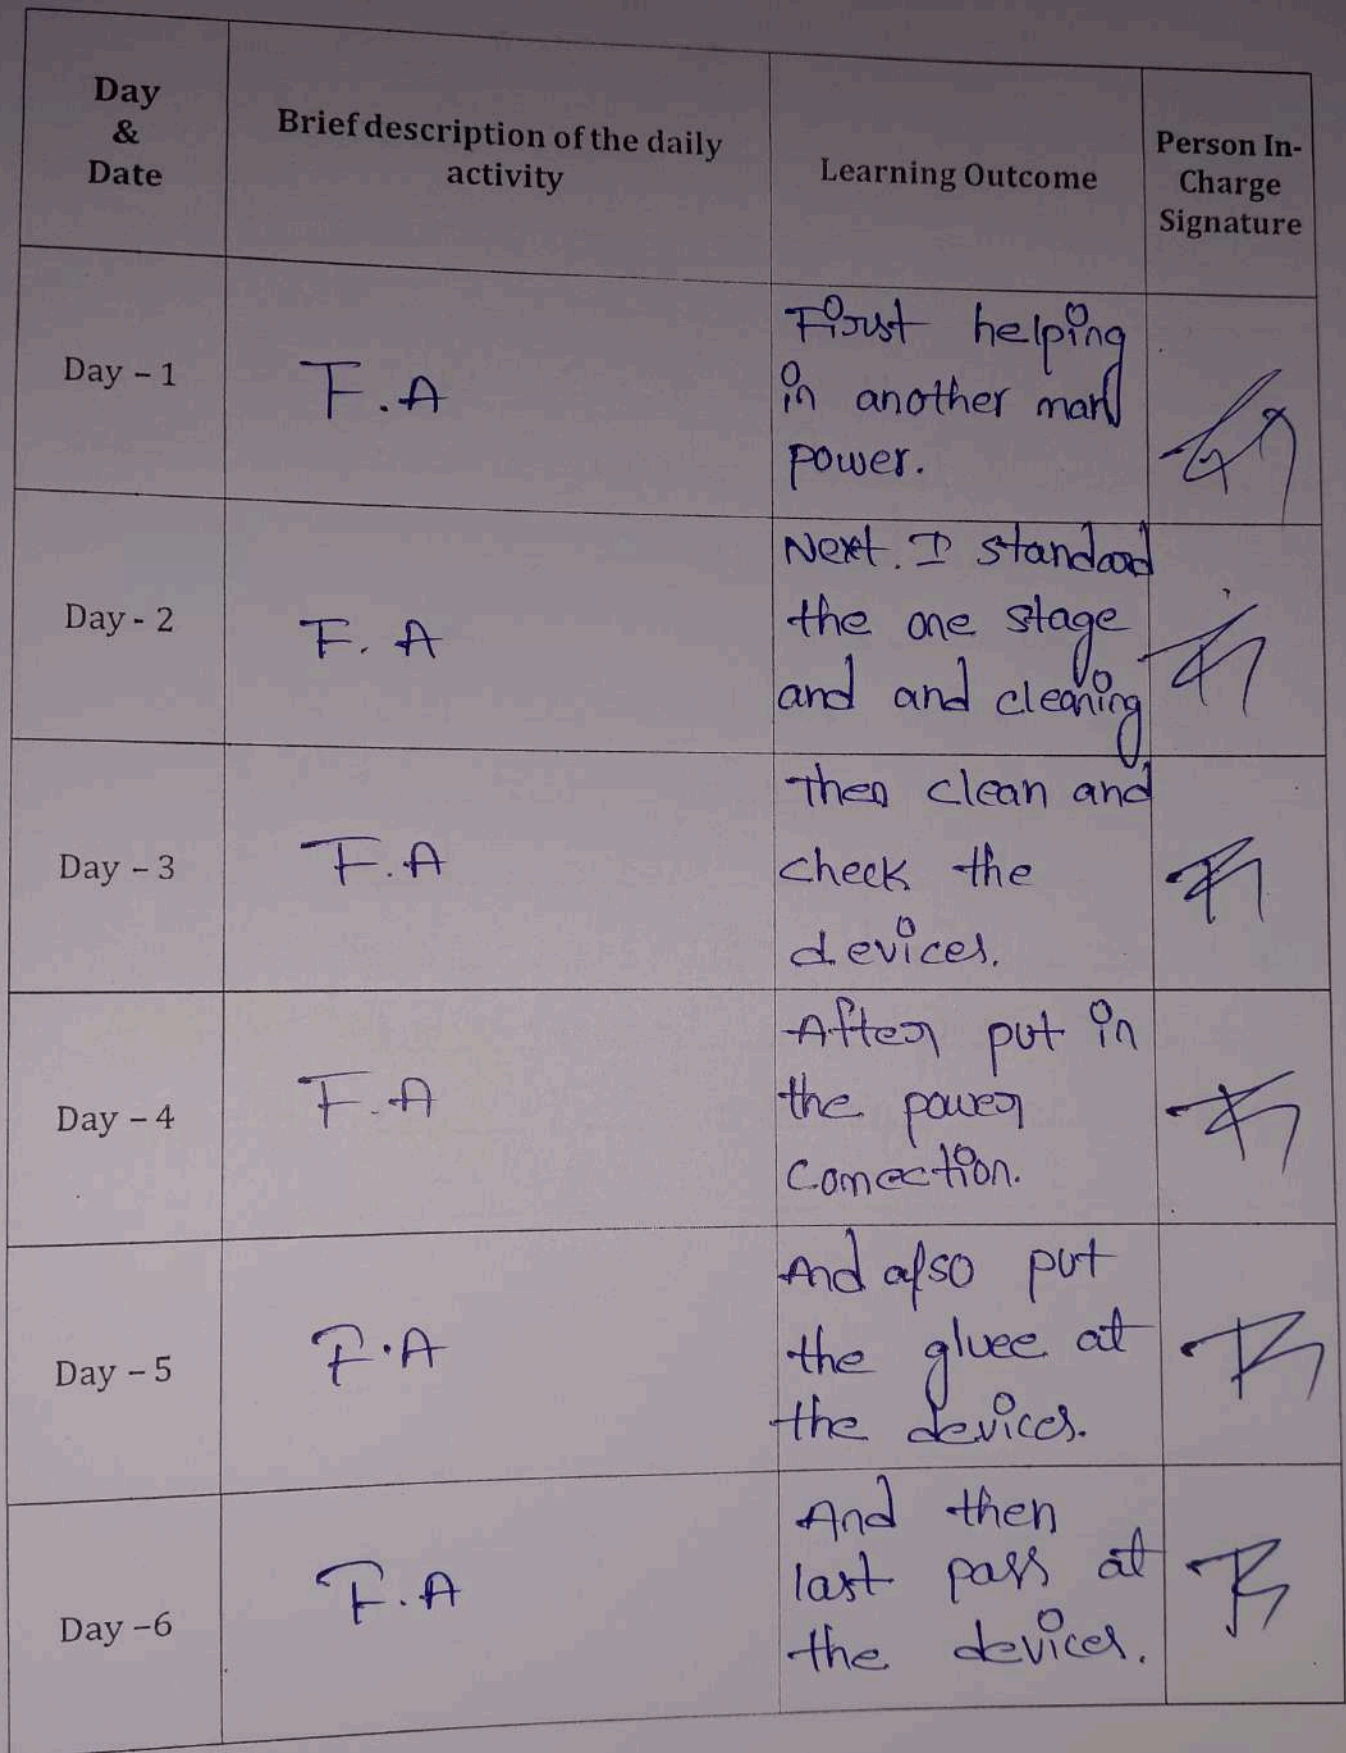 Day
&
Date
Brief description of the daily
activity
Learning Outcome
Person In-
Charge
Signature
Day – 1
F.A
First helping
in another man
power.
Day - 2
F. A
Next. I standard
the one stage
and and cleaning
Day – 3
F.A
Then clean and
check the
devices.
Day – 4
F.A
After put in
the power
Connection.
Day – 5
F.A
And also put
the gluee at
the devices.
Day –6
F.A
And then
last pass at
the devices.